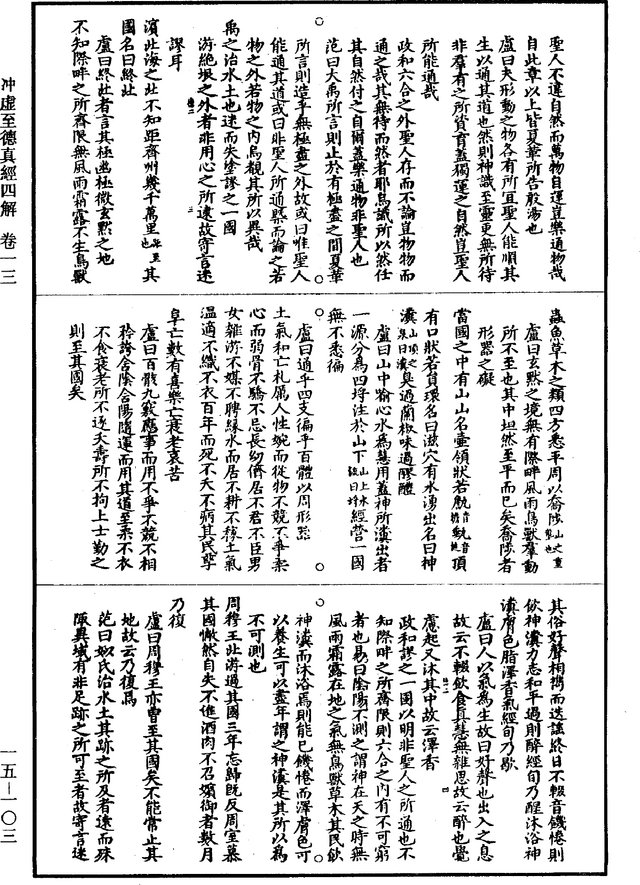 聖人不違自然而萬物自運豈樂通物哉
自此章以上皆夏革所告殷湯也
盧曰夫形動之物各有所宜聖人能順其
生以通其道也然則神識至靈更無所待
非羣有之所資育蓋獨運之自然豈聖人
所能通哉
政和六合之外聖人存而不論豈物物而
通之哉其無待而然者耶烏識所以然任
其自然付之自爾蓋樂通物非聖人也
范曰大禹所言則止於有極盡之間夏革
所言則造乎無極盡之外故或曰唯聖人
能通其道或曰非聖人所通槩而論之若
物之外若物之内烏覩其所以異哉
禹之治水土也迷而失塗謬之一國
游絶垠之外者非用心之所逮故寄言迷
謬耳
濱北海之北不知距齊州幾千萬里其
國名曰終北
盧曰終北者言其極幽極微玄黙之地
不知際畔之所齊限無風雨霜露不生鳥獸
蟲魚草木之類四方悉平周以喬陟山之重壟也
盧曰玄黙之境無有際畔風雨鳥獸羣動
所不至也其中坦然至平而已矣喬陟者
形器之礙
當國之中有山山名壷領狀若甔甀頂
有口狀若員環名曰滋穴有水湧出名曰神
瀵山頂之泉曰瀵臭過蘭椒味過醪醴
盧曰山中喻心水為慧用蓋神所瀵出者
一源分為四埒注於山下山上水流曰埒經營一國
無不悉徧
盧曰通乎四支徧乎百體以周形器
土氣和亡札厲人性婉而從物不競不爭柔
心而弱骨不驕不忌長幼儕居不君不臣男
女雜游不媒不聘緣水而居不耕不稼土氣
溫適不織不衣百年而死不夭不病其民孳
阜亡數有喜樂亡衰老哀苦
盧曰百骸九竅應事而用不爭不競不相
矜誇含陰含陽隨運而用其道至柔不衣
不食衰老所不逐夭壽所不拘上士勤之
則至其國矣
其俗好聲相攜而迭謡終日不輟音饑惓則
飲神瀵力志和平過則醉經旬乃醒沐浴神
瀵膚色脂澤香氣經旬乃歇
盧曰人以氣為生故曰好聲也出入之息
故云不輟飲食真慧無雜思故云醉也覺
慮起又沐其中故云澤香
政和謬之一國以明非聖人之所通也不
知際畔之所齊限則六合之内有不可窮
者也易曰陰陽不測之謂神在天之時無
風雨霜露在地之氣無鳥獸草木其民飲
神瀵而沐浴焉則能已饑惓而澤膚色可
以養生可以盡年謂之神瀵是其所以為
不可測也
周穆王北游過其國三年忘歸既反周室慕
其國惝然自失不進酒肉不召嬪御者數月
乃復
盧曰周穆王亦曽至其國矣不能常止其
地故云乃復焉
范曰姒氏治水土其跡之所及者逺而殊
陬異域有非足跡之所可至者故寄言迷
冲虛至德真經四解　卷一三
一五―一〇三